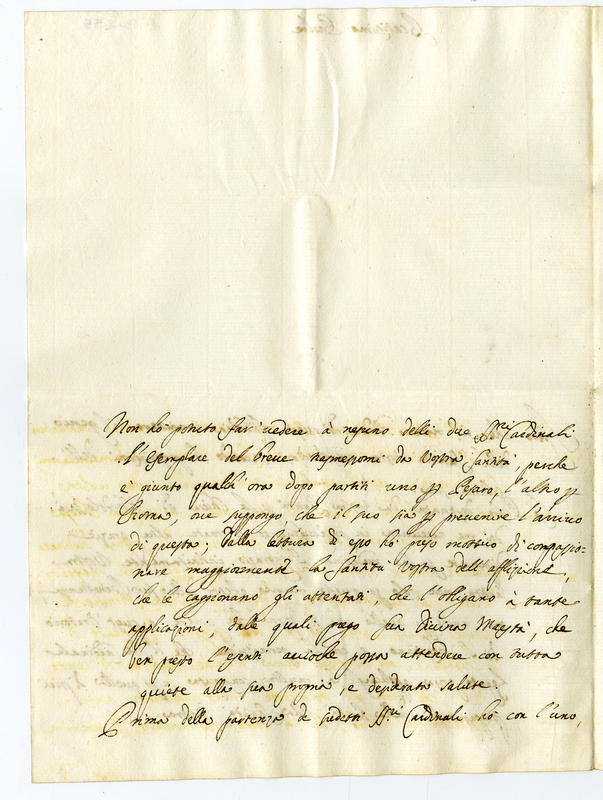 Non ho potuto far vedere à nessuno delli due SS.ri Cardinali
l'Esemplare del breve trasmessomi da Vostra Santità, perche
è giunto qualch'ora dopo partiti uno p Pesaro, l'altro p
Roma, ove suppongo, che il suo sia p prevenire l'arrivo
di questa; Dalla lettura di esso hò preso motivo di compassio-
nare maggiormente la Santità Vostra dell'afflizione,
che le cagionano gli attentati, che l'obligano à tante
applicazioni, dalle quali prego Sua Divina Maestà, che
ben presto l'esenti accioche possa attendere con tutta
quiete alla sua propria, e desiderata salute.
Prima della partenza de sudetti SS.ri Cardinali hò con l'uno,